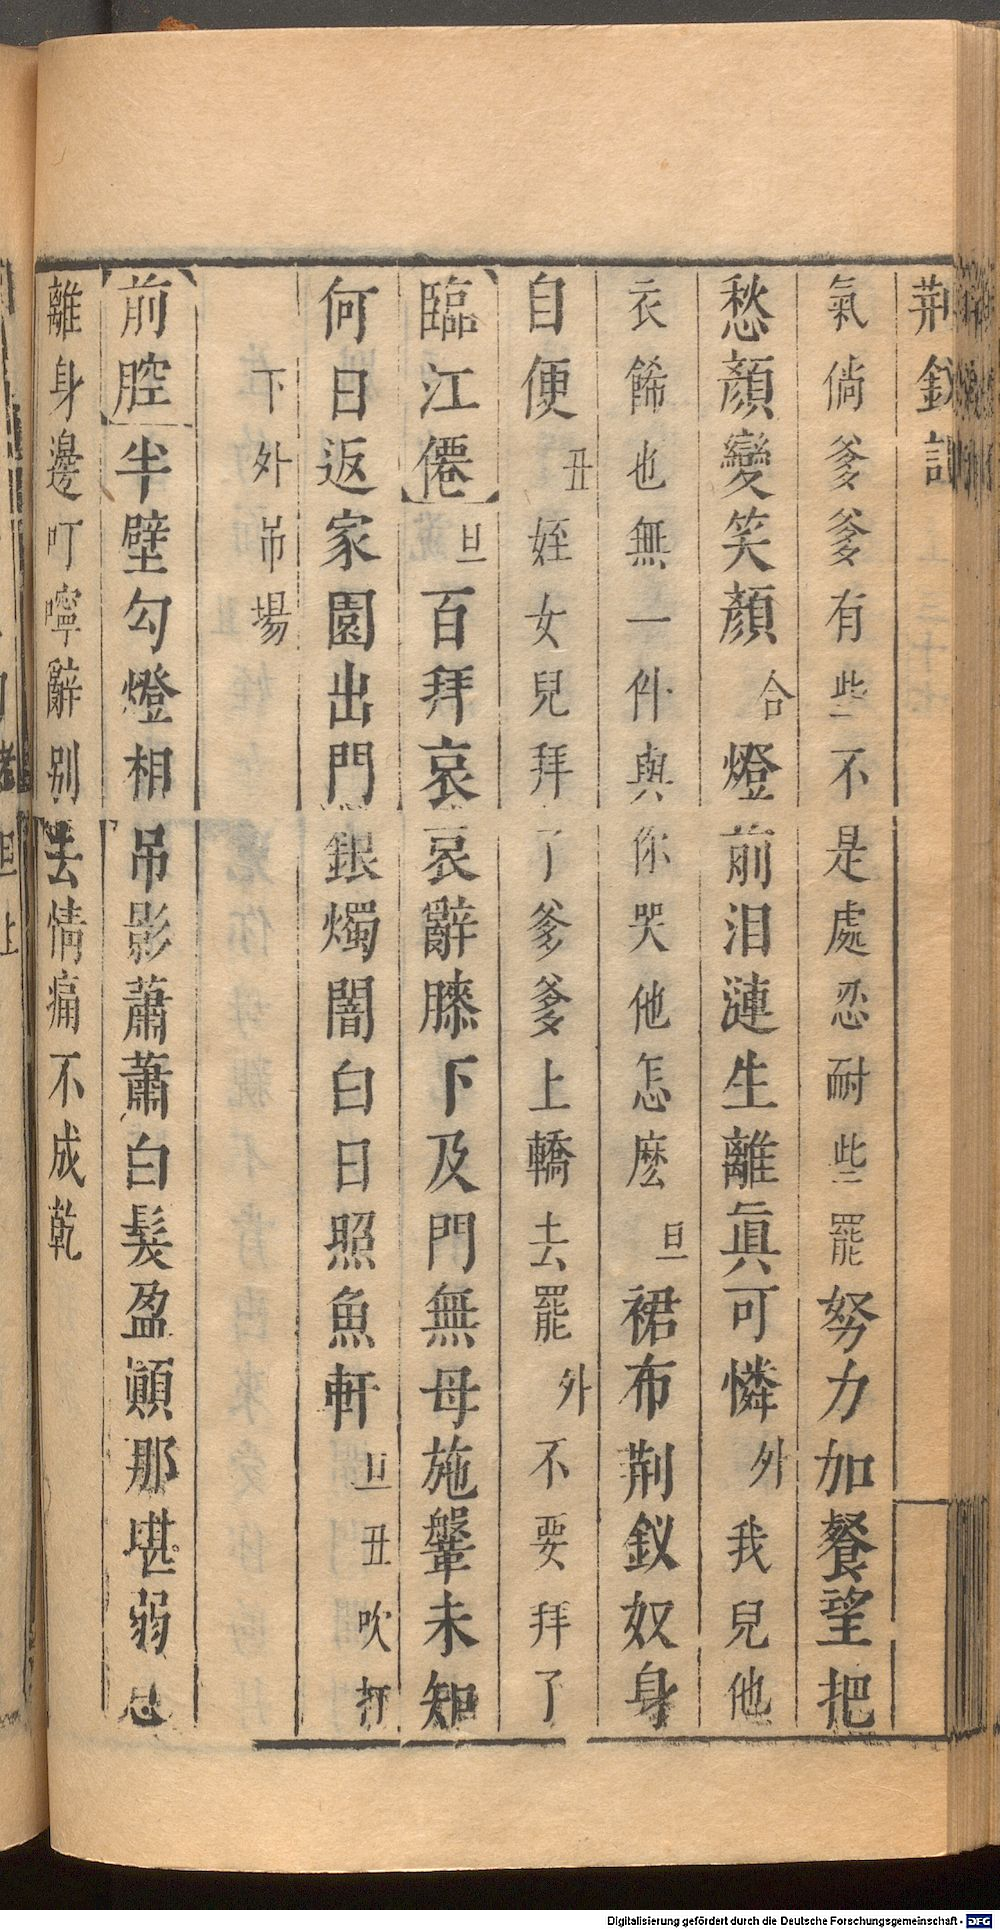 荆釵記
氣倘爹爹有些不是處忍耐些罷努力加餐望把
愁顔變笑顔合燈前泪漣生離眞可憐外我兒他
衣餙也無一件與你哭他怎麽旦裙布荆釵奴身
自便丑姪女兒拜了爹爹上轎去罷外不要拜了
臨江僊旦百拜哀哀辭膝下及門無母施鞶未知
何日返家園出門銀燭闇白日照魚軒旦丑吹打
下外吊場
前腔半壁勾燈相吊影蕭蕭白髮盈顚那堪弱息
離身邊叮嚀辭别去情痛不成乾
旦上
Digitalisierung gefördert durch die Deutsche Forschungsgemeinschaft - DFG